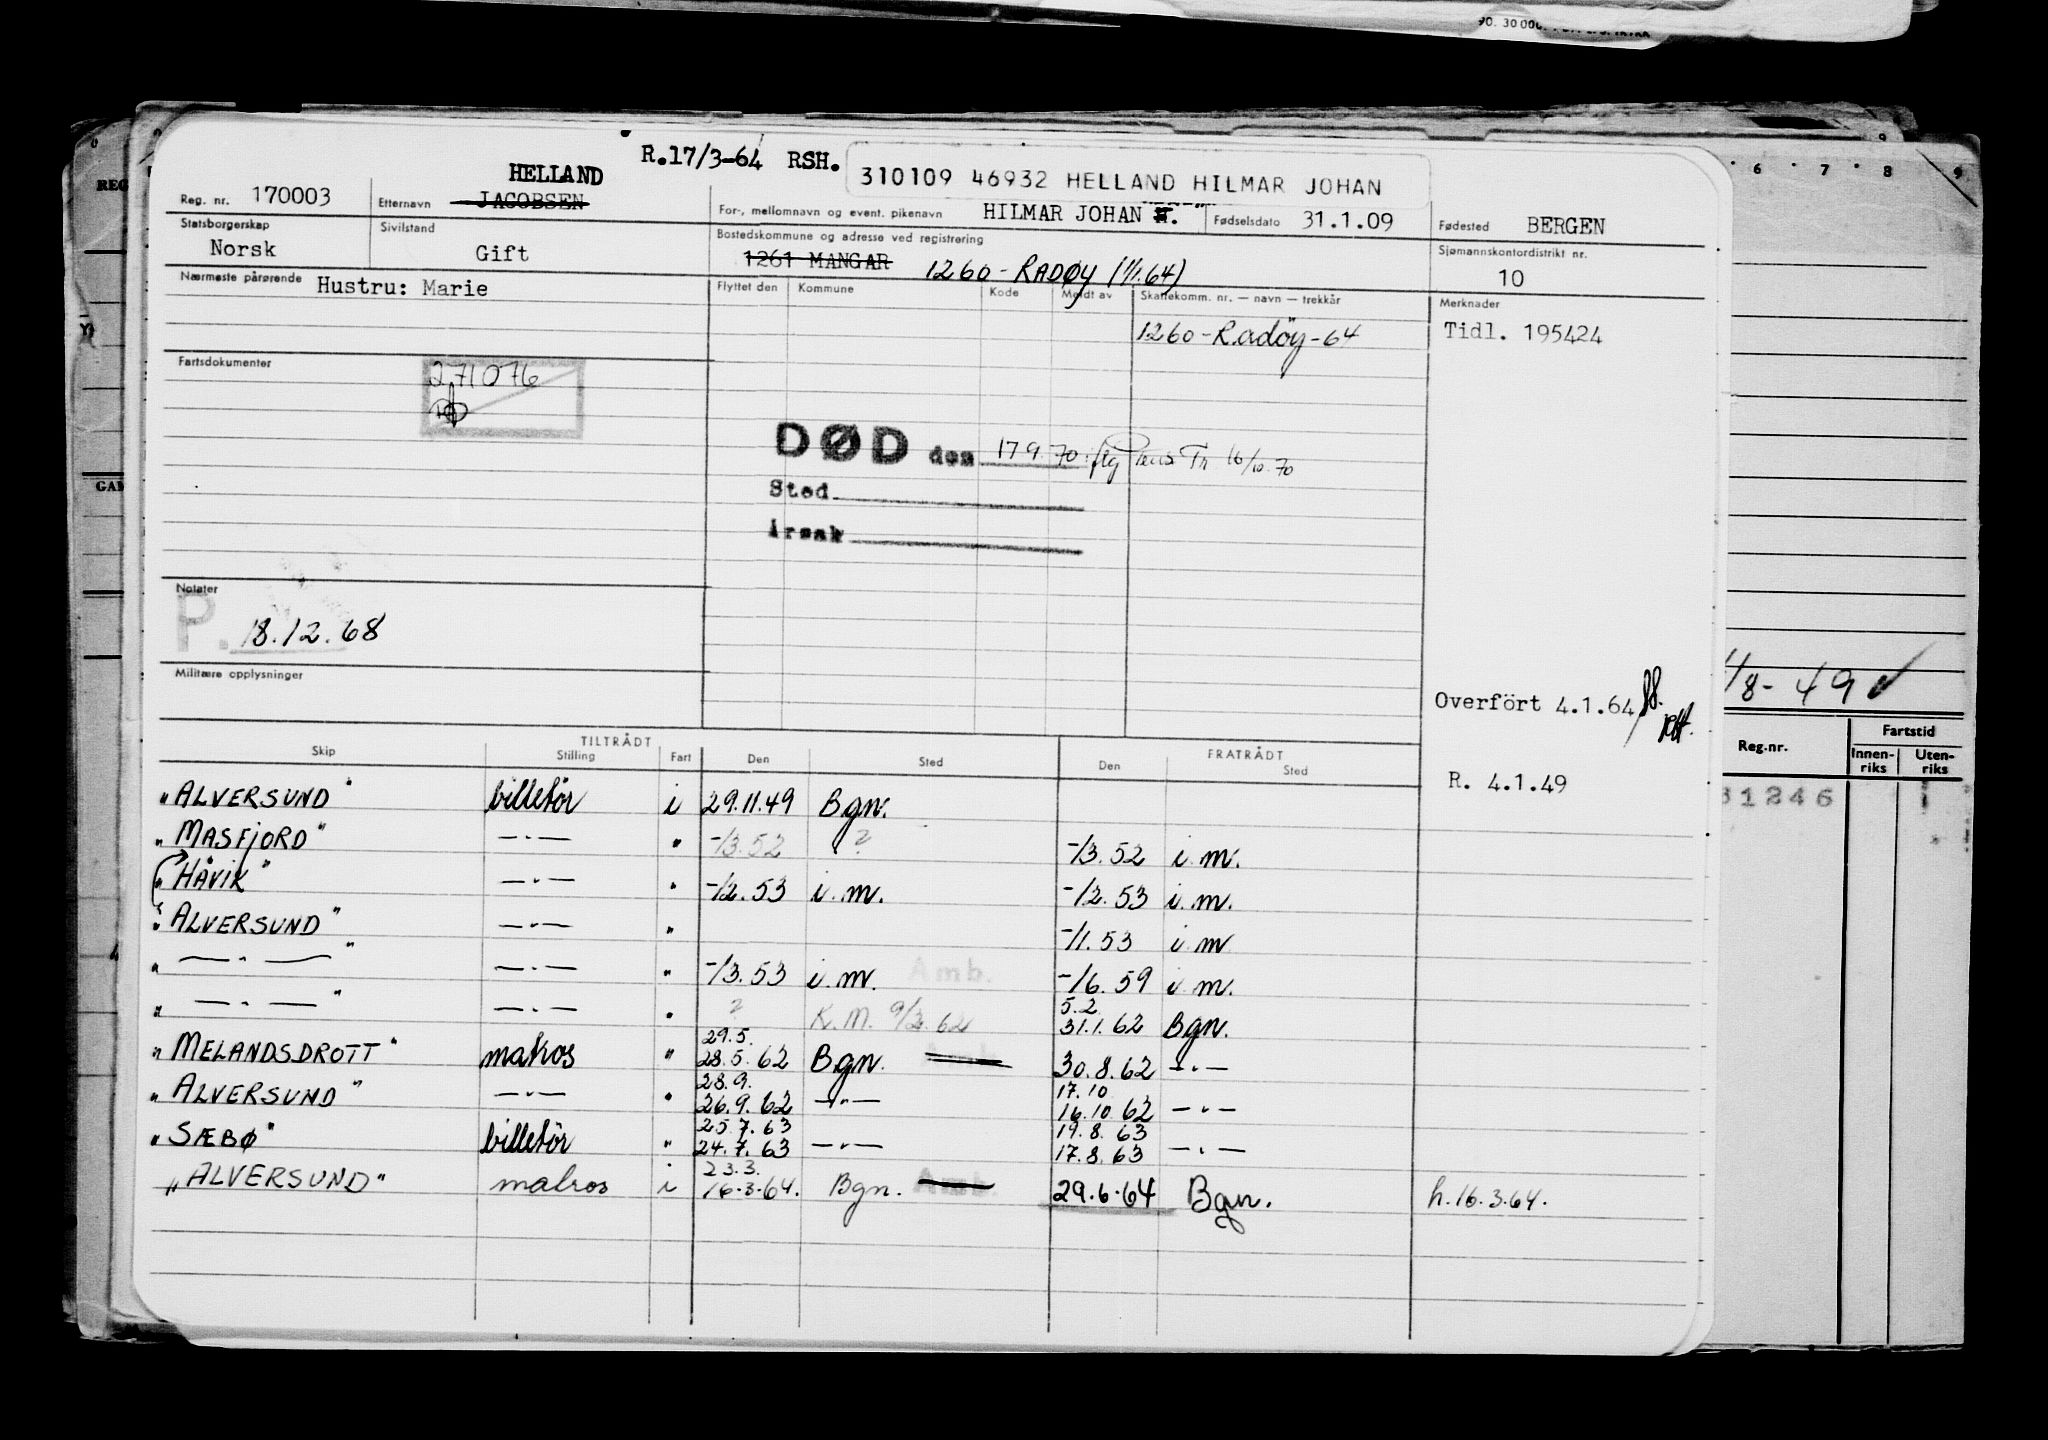 R.17/3-64 RSH. 310109 46932 HELLAND HILMAR JOHAN
Reg. nr. 170003 Etternavn HELLAND JACOBSEN For-, mellomnavn og event. pikenavn HILMAR JOHAN H. Fødselsdato 31.1.09 Fødested BERGEN
Statsborgerskap Norsk Sivilstand Gift Bostedskommune og adresse ved registrering 1261 MANGAR 1260 - RADØY (1/1.64) Sjømannskontordistrikt nr. 10
Nærmeste pårørende Hustru: Marie Flyttet den Kommune Kode Meldt av Skattekomm. nr. — navn — trekkår Merknader
1260 - Radöy - 64 Tidl. 195424
Fartsdokumenter
271076
DØD den 17 9. 70
16/10. 70
Sted
Årsak
Notater
P. 18.12.68
Militære opplysninger
Overfört 4.1.64
TILTRÅDT FRATRÅDT
Skip Stilling Fart Den Sted Den Sted
R. 4.1.49
"ALVERSUND" billetör i 29.11.49 Bgn.
"MASFJORD" —"— " -/3.52 ? -/3.52 i.m.
"HÅVIK" —"— " -/2.53 i.m. -/2.53 i.m.
"ALVERSUND" —"— " -/1.53 i.m
" —"— " —"— " -/3.53 i.m. Amb. -/6.59 i.m.
" —"— " —"— " ? K.M. 9/2.62 5.2 31.1.62 Bgn.
"MELANDSDROTT" matros " 29.5. 28.5.62 Bgn. 30.8.62 —"—
"ALVERSUND" —"— " 28.9. 26.9.62 —"— 17.10 16.10.62 —"—
"SÆBØ" billetör " 25.7.63 24.7.63 —"— 19.8.63 17.8.63 —"—
"ALVERSUND" matros i 23.3. 16.3.64. Bgn. Amb. 29.6.64 Bgn. h.16.3.64.
1/8- 49
Reg.nr. Fartstid
Innen-riks Uten-riks
31246
6 7 8 9
REG
GAM